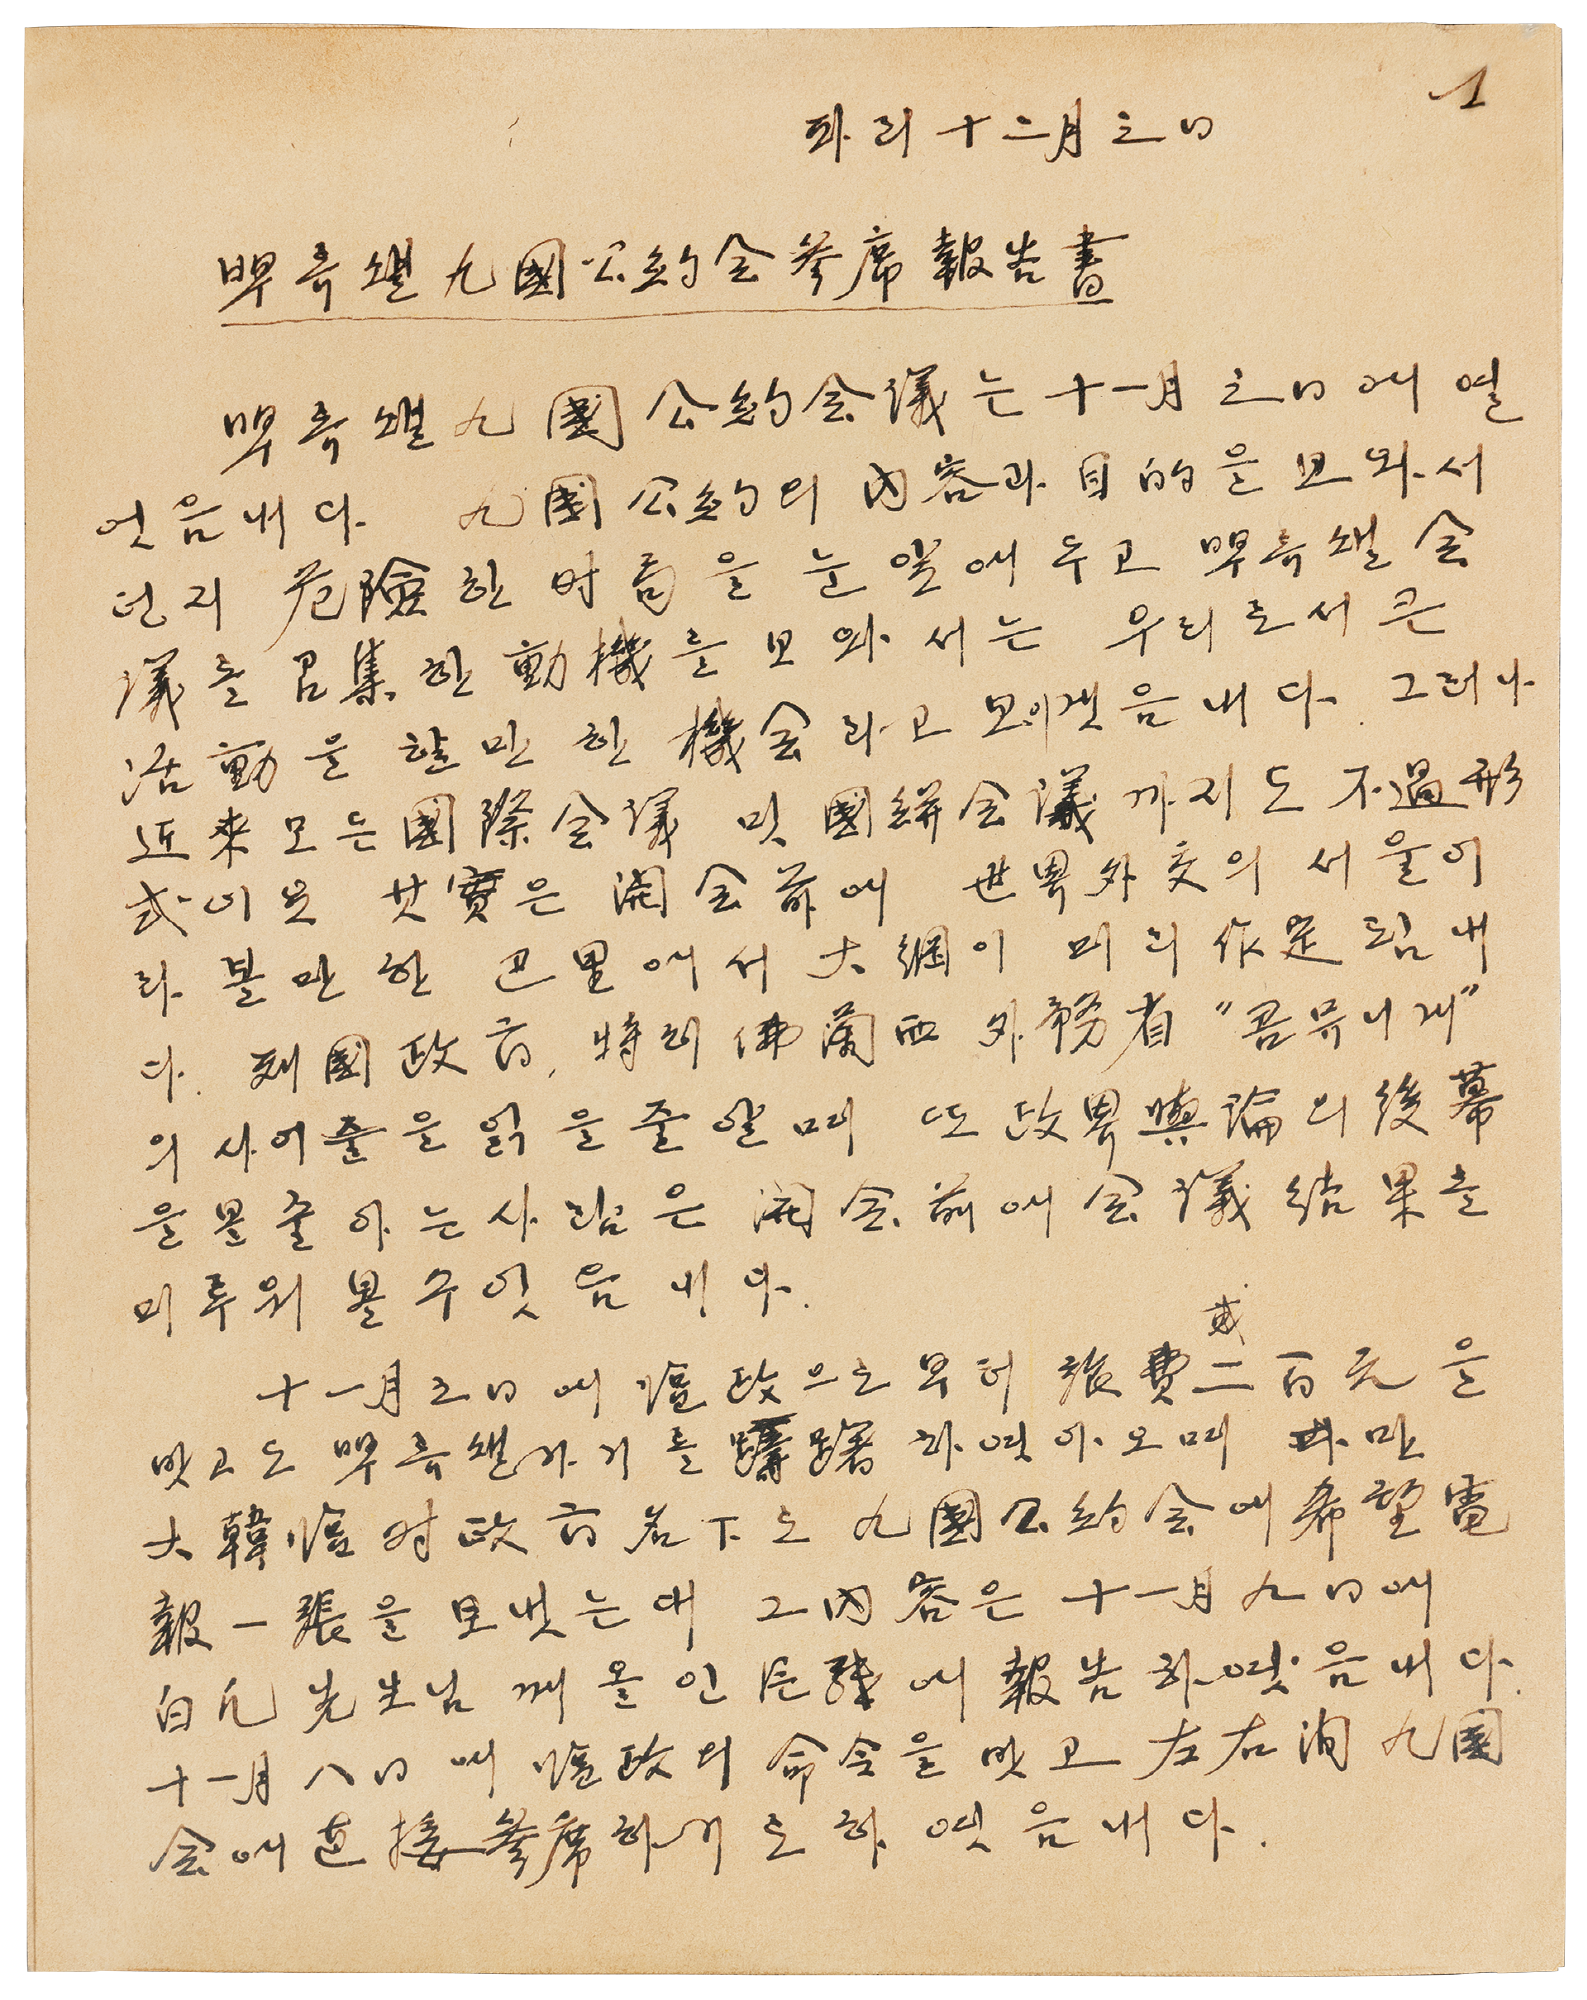 1
파리 十二月 三日
뿌륵쎌 九國公約会參席報告書
뿌륵쎌 九國公約会議는 十一月 三日에 열
엇음내다. 九國公約의 內容과 目的을 보와서
던지 危險한 时局을 눈앞에 두고 뿌륵쎌 会
議를 召集한 動機를 보와서는 우리로서 큰
活動을 할만한 機会라고 보이겟음내다. 그러나
近來 모든 國際会議 밋 國聯会議까지도 不過形
式이오 其實은 開会前에 世界外交의 서울이
라 볼만한 巴里에서 大綱이 미리 作定됨내
다. 列國政府, 特히 佛蘭西 外務省 "콤뮤니게"
의 사이줄을 읽을줄 알며 또 政界輿論의 後幕
을 볼줄 아는 사람은 開会前에 会議結果를
미루워 볼수 잇음내다.
十一月 三日에 臨政으로부터 旅費 貳百元을
밧고도 뿌륵쎌 가기를 躊躇하엿아오며 다만
大韓臨时政府名下로 九國公約会에 希望電
報一張을 보냇는대 그 內容은 十一月 九日에
白凡先生님께 올인 片牋에 報告하엿음내다.
十一月 八日에 臨政의 命令을 밧고 左右洵 九國
会에 直接參席하기로 하엿음내다.